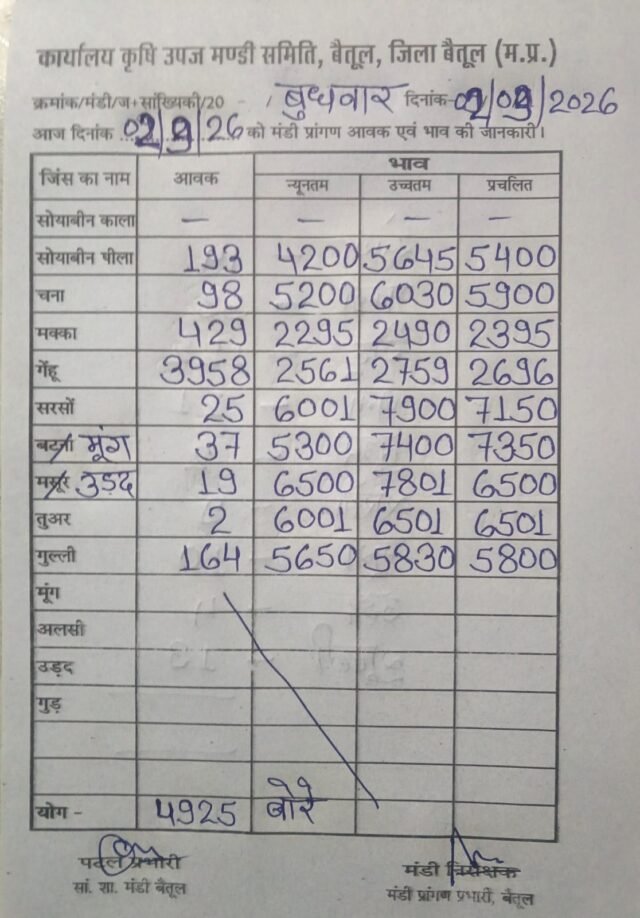 कार्यालय कृषि उपज मण्डी समिति, बैतूल, जिला बैतूल (म.प्र.)
क्रमांक/मंडी/ज+सांख्यिकी/20 - / बुधवार दिनांक-02/09/2026
आज दिनांक 02/9/26 को मंडी प्रांगण आवक एवं भाव की जानकारी।
जिंस का नाम आवक भाव
न्यूनतम उच्चतम प्रचलित
सोयाबीन काला — — — —
सोयाबीन पीला 193 4200 5645 5400
चना 98 5200 6030 5900
मक्का 429 2295 2490 2395
गेंहू 3958 2561 2759 2696
सरसों 25 6001 7900 7150
बटना मूंग 37 5300 7400 7350
मसूर उड़द 19 6500 7801 6500
तुअर 2 6001 6501 6501
गुल्ली 164 5650 5830 5800
मूंग
अलसी
उड़द
गुड़
योग - 4925 बोरे
प्रभारी मंडी निरीक्षक
सां. शा. मंडी बैतूल मंडी प्रांगण प्रभारी, बैतूल